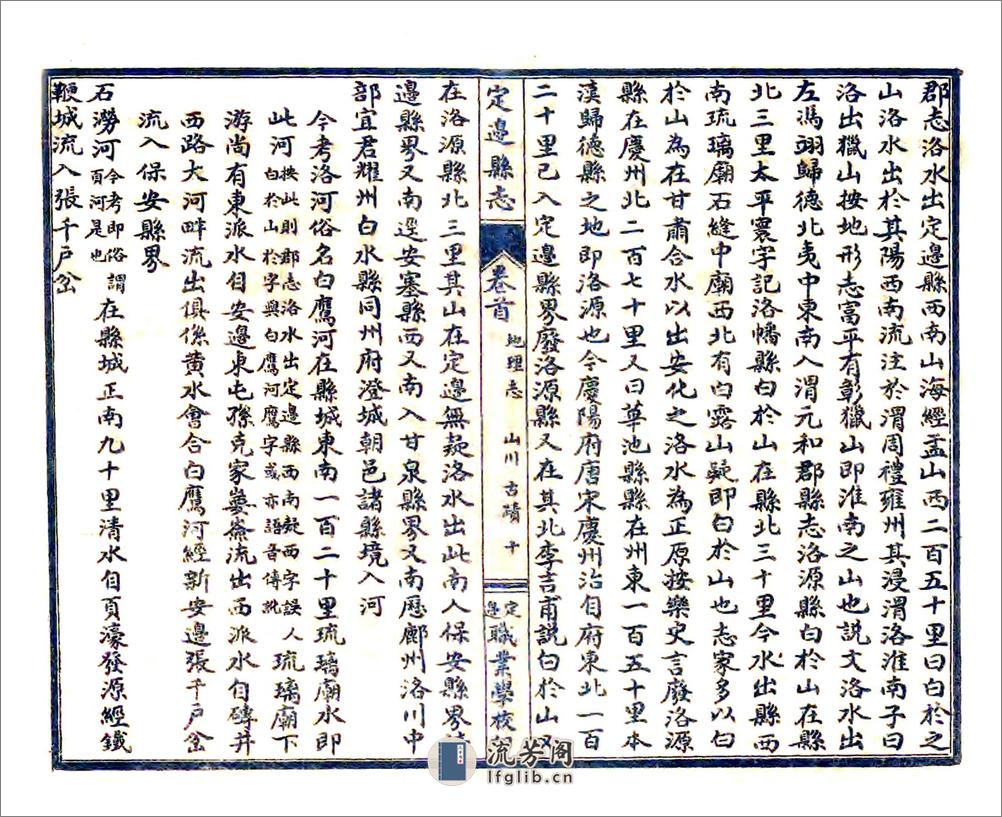 郡志洛水出定邊縣西南山海經孟山西二百五十里曰白於之
山洛水出於其陽西南流注於渭周禮雍州其浸渭洛淮南子曰
洛出獵山按地形志富平有彰獵山即淮南之山也説文洛水出
左馮翊歸德北夷中東南入渭元和郡縣志洛源縣白於山在縣
北三里太平寰宇記洛幡縣白於山在縣北三十里今水出縣西
南琉璃廟石縫中廟西北有白露山疑即白於山也志家多以白
於山為在甘肅合水以出安化之洛水為正原按樂史言廢洛源
縣在慶州北二百七十里又曰華池縣縣在州東一百五十里本
漢歸德縣之地即洛源也今慶陽府唐宋慶州治自府東北一百
二十里已入定邊縣界廢洛源縣又在其北李言甫説白於山又
定邊縣志 卷首 地理志 山川 古蹟 十 定邊職業學校
在洛源縣北三里其山在定邊無疑洛水出此南入保安縣界
邊縣界又南逕安塞縣西又南入甘泉縣界又南歷鄜州洛川中
部宜君耀州白水縣同州府澄城朝邑諸縣境入河
今考洛河俗名白鷹河在縣城東南一百二十里琉璃廟水即
此河按此則郡志洛水出定邊縣西南疑西字誤人白於山於字與白鷹河鷹字或亦語音傳訛琉璃廟下
游尚有東派水自安邊東屯孫克家崾崙流出西派水自磚井
西路大河畔流出俱係黄水會合白鷹河經新安邊張千戶岔
流入保安縣界
石澇河今考即俗謂百河是也在縣城正南九十里清水自頁濠發源經鐵
鞭城流入張千戶岔
流芳阁
lfglib.cn